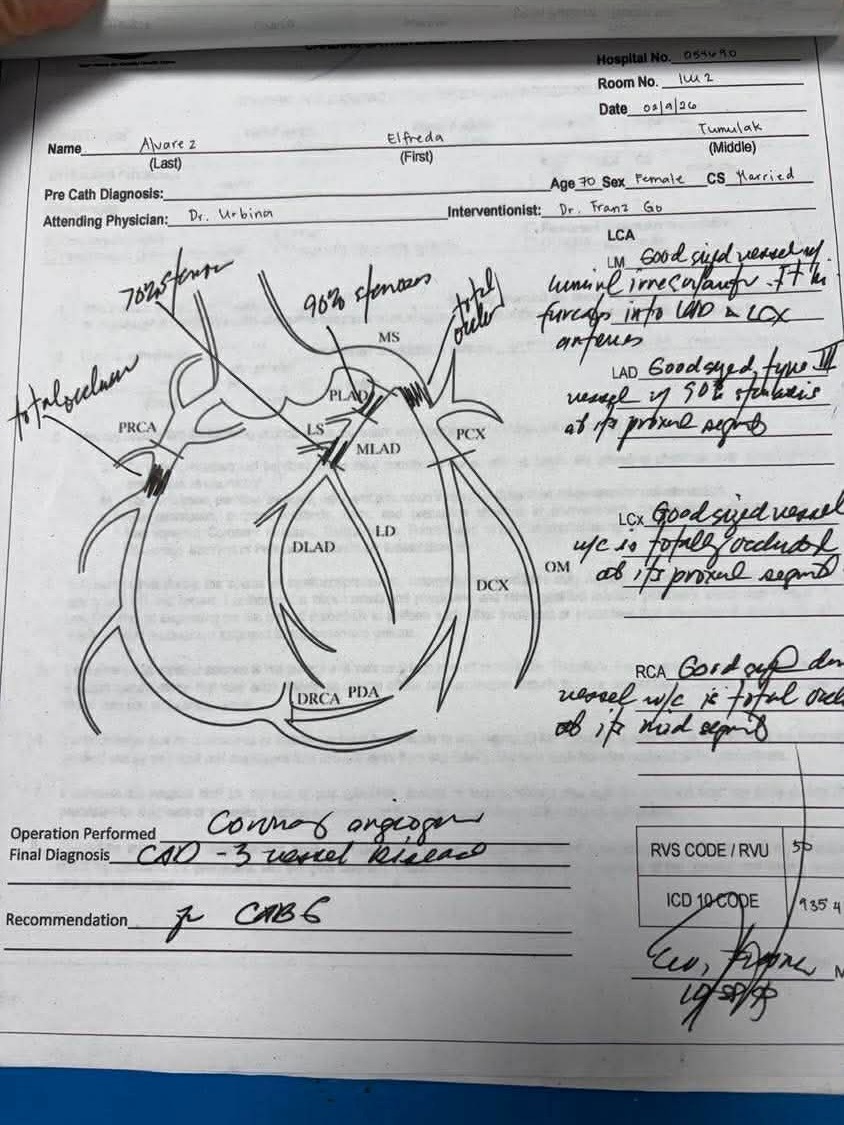 Hospital No. 054690
Room No. ICU 2
Date 02/9/26
Name Alvarez Elfreda Tumulak
(Last) (First) (Middle)
Pre Cath Diagnosis: Age 70 Sex Female CS Married
Attending Physician: Dr. Urbina Interventionist: Dr. Franz Go
LCA
LM Good sized vessel w/
luminal irregularity. It
into LAD & LCX
arteries
LAD Good sized, type III
vessel w/ 90% stenosis
at its proximal segment
LCx Good sized vessel
w/c is totally occluded
at its proximal segment
RCA Good sized dom
vessel w/c is total occl
at its mid segment
70% stenosis
90% stenosis
total occlu
total occlusion
MS
PLAD
PRCA
LS
MLAD
PCX
DLAD
LD
DCX
OM
DRCA PDA
Operation Performed Coronary angiogram
Final Diagnosis CAD - 3 vessel disease
Recommendation for CABG
RVS CODE / RVU 50
ICD 10 CODE 9354
M